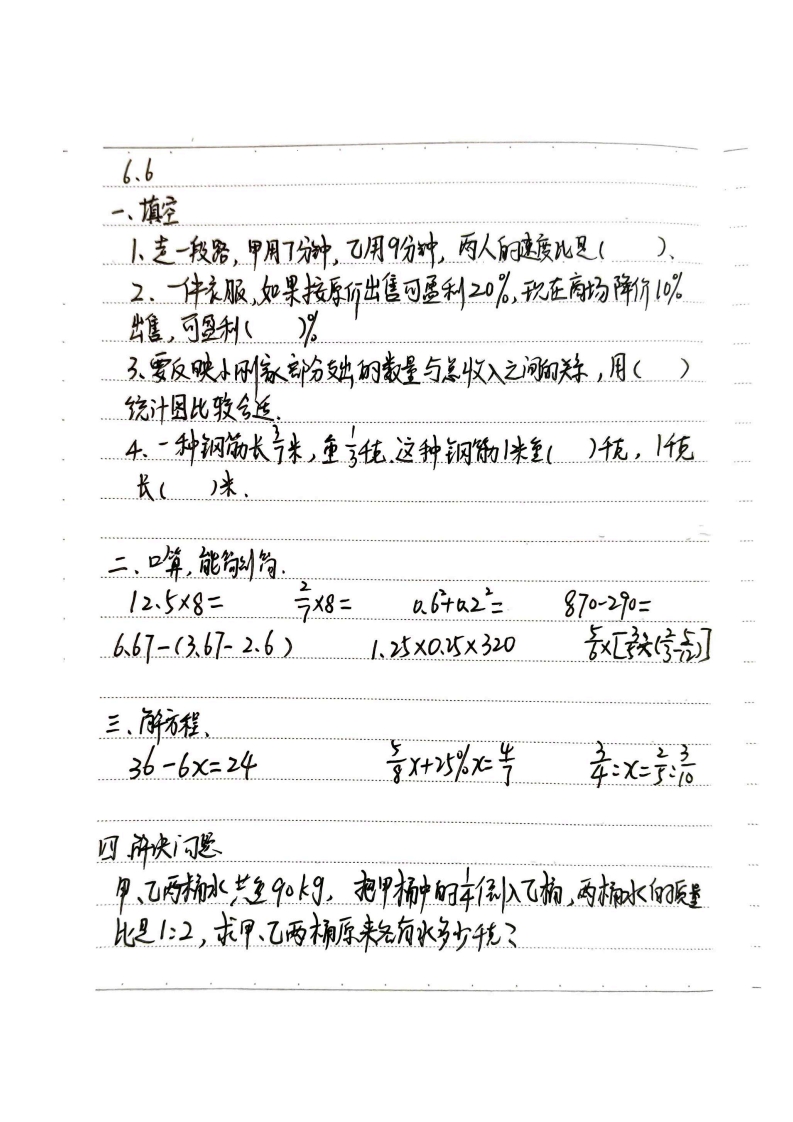 6.6
一、填空
1、走一段路，甲用7分钟，乙用9分钟，两人的速度比是（ ）.
2、一件衣服，如果按原价出售可盈利20%，现在商场降价10%
出售，可盈利（ ）%
3、要反映小刚家部分支出的数量与总收入之间的关系，用（ ）
统计图比较合适.
4、一种钢筋长3/7米，重1/3千克.这种钢筋1米重（ ）千克，1千克
长（ ）米.
二、口算，能简则简.
12.5×8= 2/7×8= 0.6²+0.2²= 870-290=
6.67-(3.67-2.6) 1.25×0.25×320 5/6×[3/5×(2/3-5/12)]
三、解方程、
36-6x=24 5/8x+25%x=4/7 3/4:x=2/5:3/10
四、解决问题
甲、乙两桶水共重90kg，把甲桶中的1/4倒入乙桶，两桶水的质量
比是1:2，求甲、乙两桶原来各有水多少千克？